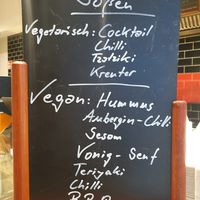 Soßen
Vegetarisch: Cocktail
Chilli
Tzatziki
Kräuter
Vegan: Hummus
Aubergin-Chilli
Sesam
Honig-Senf
Teriyaki
Chilli
B.B.Q